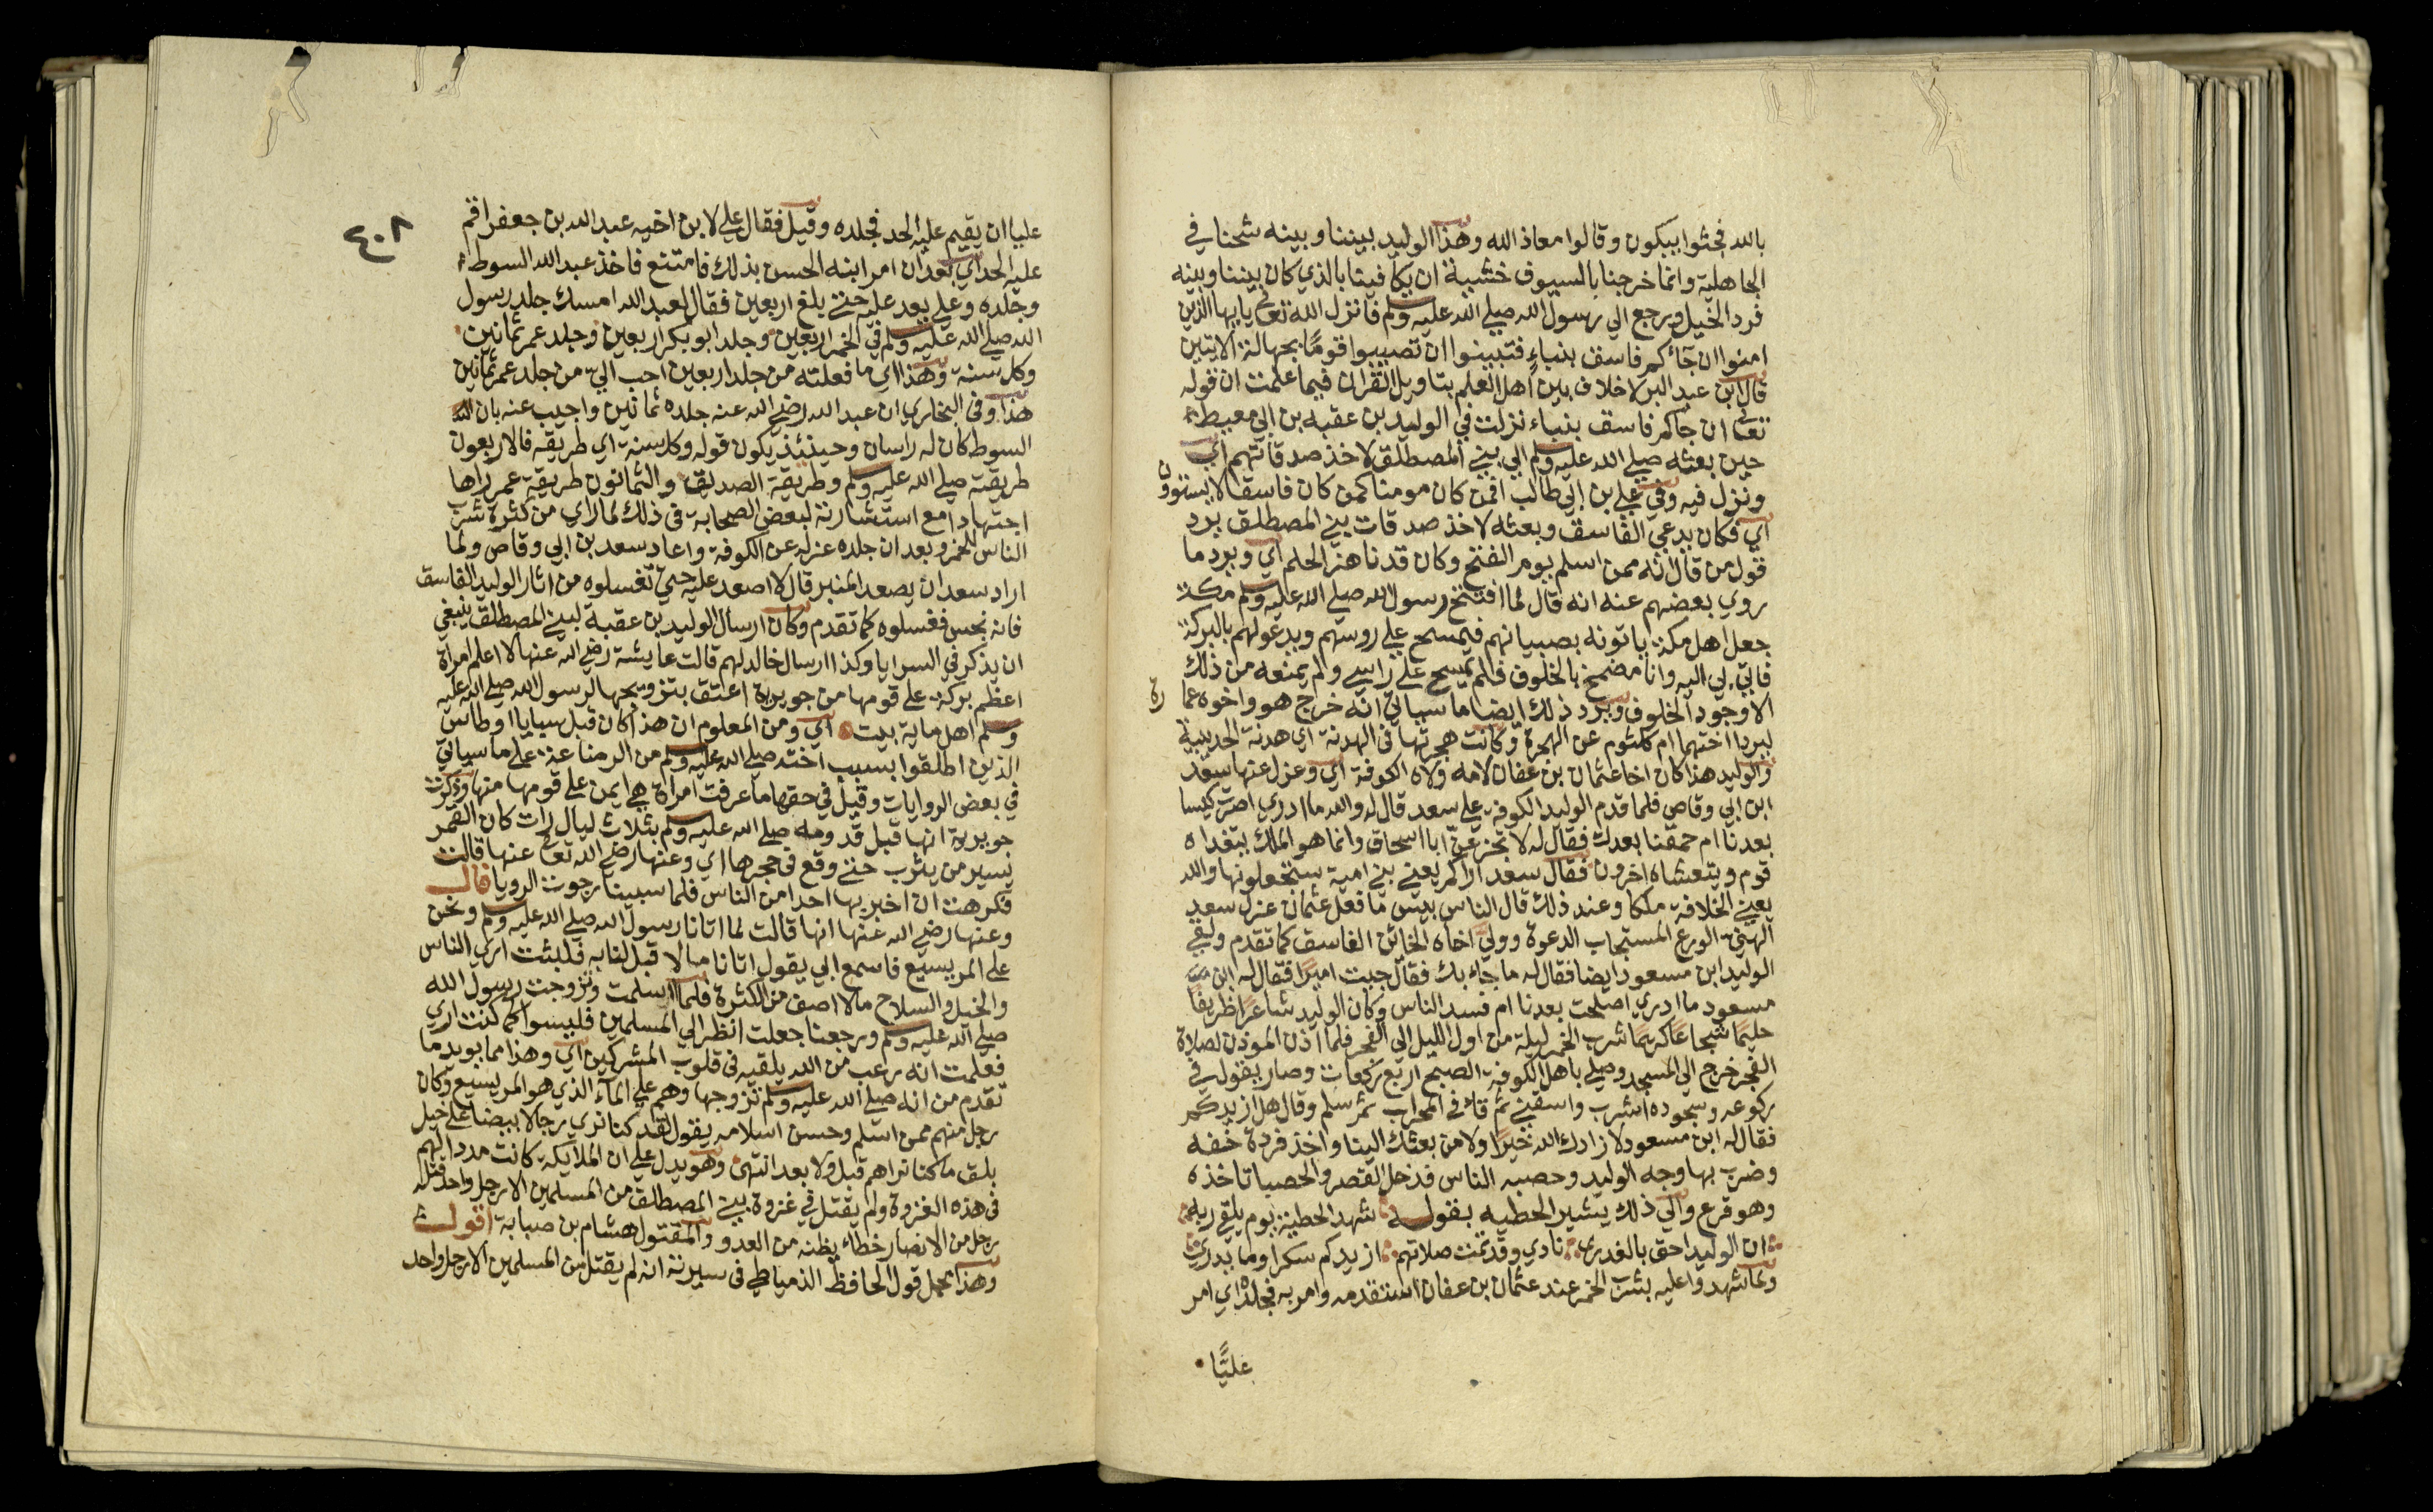 بالله فجثوا يبكون وقالوا معاذ الله وهذا الوليد بيننا وبينه شحنا في
الجاهلية وانما خرجنا بالسيوف خشية ان يكافينا بالذي كان بيننا وبينه
فرد الخيل ورجع الي رسول الله صلي الله عليه وسلم فانزل الله تعالى يايها الذين
امنوا ان جآكم فاسق بنباء فتبينوا ان تصيبوا قومًا بجهالة الايتين
قال ابن عبد البر لا خلاف بين اهل العلم بتاويل القران فيما علمت ان قوله
تعالى ان جاكم فاسق بنباء نزلت في الوليد بن عقبه بن ابي معيط
حين بعثه صلي الله عليه وسلم الي بني المصطلق لاخذ صدقاتهم اي
ونزل فيه وفي علي بن ابي طالب افمن كان مومنا كمن كان فاسقا لا يستوون
اي فكان يدعي الفاسق وبعثه لاخذ صدقات بني المصطلق يرد
قول من قال انه ممن اسلم يوم الفتح وكان قد ناهز الحلم اي ويرد ما
روي بعضهم عنه انه قال لما افتتح رسول الله صلي الله عليه وسلم مكة
جعل اهل مكة ياتونه بصبيانهم فيمسح علي روسهم ويدعو لهم بالبركة
فاتي بي اليه وانا مضمخ بالخلوق فلم يمسح علي راسي ولم يمنعه من ذلك
الا وجود الخلوق ويرد ذلك ايضا ما سياتي انه خرج هو واخوه عمارة
ليردا اختهما ام كلثوم عن الهجرة وكانت هجرتها في الهدنة اي هدنة الحديبية
والوليد هذا كان اخا عثمان بن عفان لامه ولاه الكوفة اي وعزل عنها سعد
ابن ابي وقاص فلما قدم الوليد الكوفة علي سعد قال له والله ما ادري اصرت كيسا
بعدنا ام حمقنا بعدك فقال له لا تجزعن ابا اسحاق وانما هو الملك يتغداه
قوم ويتعشاه اخرون فقال سعد اراكم يعني بني امية ستجعلونها والله
يعني الخلافة ملكا وعند ذلك قال الناس بيس ما فعل عثمان عزل سعد
الهين الورع المستجاب الدعوة وولي اخاه الخائن الفاسق كما تقدم ولقي
الوليد ابن مسعود ايضا فقال له ما جاء بك فقال جيت اميرا فقال له ابن
مسعود ما ادري اصلحت بعدنا ام فسد الناس وكان الوليد شاعرا ظريفا
حليمًا شجاعًا كريمًا شرب الخمر ليلة من اول الليل الي الفجر فلما اذن الموذن لصلاة
الفجر خرج الي المسجد وصلي باهل الكوفة الصبح اربع ركعات وصار يقول في
ركوعه وسجوده اشرب واسقني ثم قاء في المحراب ثم سلم وقال هل ازيدكم
فقال له ابن مسعود لا زادك الله خيرًا ولا من بعثك الينا واخذ فردة خفه
وضرب بها وجه الوليد وحصبه الناس فدخل القصر والحصبا تاخذه
وهو قرع والي ذلك يشير الحطيه بقوله شهد الحطية يوم يلقي ربه
ان الوليد احق بالغدر نادي وقد تمت صلاتهم ازيدكم سكرا وما يدري
ولما شهدوا عليه بشرب الخمر عند عثمان بن عفان استقدمه وامر به فجلد اي امر
عليًّا
٤٠٨
عليا ان يقيم عليه الحد فجلده وقيل فقال علي لابن اخيه عبد الله بن جعفر اقم
عليه الحد اي بعد ان امر ابنه الحسن بذلك فامتنع فاخذ عبد الله السوط
وجلده وعلي يعد عليه حتي بلغ اربعين فقال لعبد الله امسك جلد رسول
الله صلي الله عليه وسلم في الخمر اربعين وجلد ابو بكر اربعين وجلد عمر ثمانين
وكل سنة وهذا اي ما فعلته من جلد اربعين احب الي من جلد عمر ثمانين
هذا وفي البخاري ان عبد الله رضي الله عنه جلده ثمانين واجيب عنه بان
السوط كان له راسان وحينئذ يكون قوله وكل سنة اي طريقه فالاربعون
طريقته صلي الله عليه وسلم وطريقة الصديق والثمانون طريقة عمر راها
اجتهادا مع استشارته لبعض الصحابة في ذلك لما راي من كثرة شرب
الناس للخمر وبعد ان جلده عزله عن الكوفة واعاد سعد بن ابي وقاص ولما
اراد سعد ان يصعد المنبر قال لا اصعد عليه حتي تغسلوه من اثار الوليد الفاسق
فانه نجس فغسلوه كما تقدم وكان ارسال الوليد بن عقبة لبني المصطلق ينبغي
ان يذكر في السرايا وكذا ارسال خالد لهم قالت عايشة رضي الله عنها لا اعلم امراة
اعظم بركة علي قومها من جويرية اعتق بتزويجها لرسول الله صلي الله عليه
وسلم اهل ماية بيت اي ومن المعلوم ان هذا كان قبل سبايا اوطاس
الذين اطلقوا بسبب اخته صلي الله عليه وسلم من الرضاعة علي ما سياتي
في بعض الروايات وقيل في حقها ما عرفت امراة هي ايمن علي قومها منها وذكرت
جويرية انها قبل قدومه صلي الله عليه وسلم بثلاث ليال رات كان القمر
يسير من يثرب حتي وقع في حجرها اي وعنها رضي الله تعالى عنها قالت
فكرهت ان اخبر بها احدا من الناس فلما سبينا رجوت الرويا قال
وعنها رضي الله عنها انها قالت لما اتانا رسول الله صلي الله عليه وسلم ونحن
علي المريسيع فاسمع ابي يقول اتانا ما لا قبل لنا به فلبثت اري الناس
والخيل والسلاح ما لا اصف من الكثرة فلما اسلمت وتزوجت رسول الله
صلي الله عليه وسلم ورجعنا جعلت انظر الي المسلمين فليسوا كما كنت اري
فعلمت انه رعب من الله يلقيه في قلوب المشركين اي وهذا مما يويد ما
تقدم من انه صلي الله عليه وسلم تزوجها وهم علي المآء الذي هو المريسيع وكان
رجل منهم ممن اسلم وحسن اسلامه يقول لقد كنا نري رجالا بيضا علي خيل
بلق ما كنا نراهم قبل ولا بعد انتهى وهو يدل علي ان الملايكة كانت مددا لهم
في هذه الغزوة ولم يقتل في غزوة بني المصطلق من المسلمين الا رجل واحد قتله
رجل من الانصار خطاء يظنه من العدو والمقتول هشام بن صبابة اقول
وهذا محمل قول الحافظ الدمياطي في سيرته انه لم يقتل من المسلمين الا رجل واحد